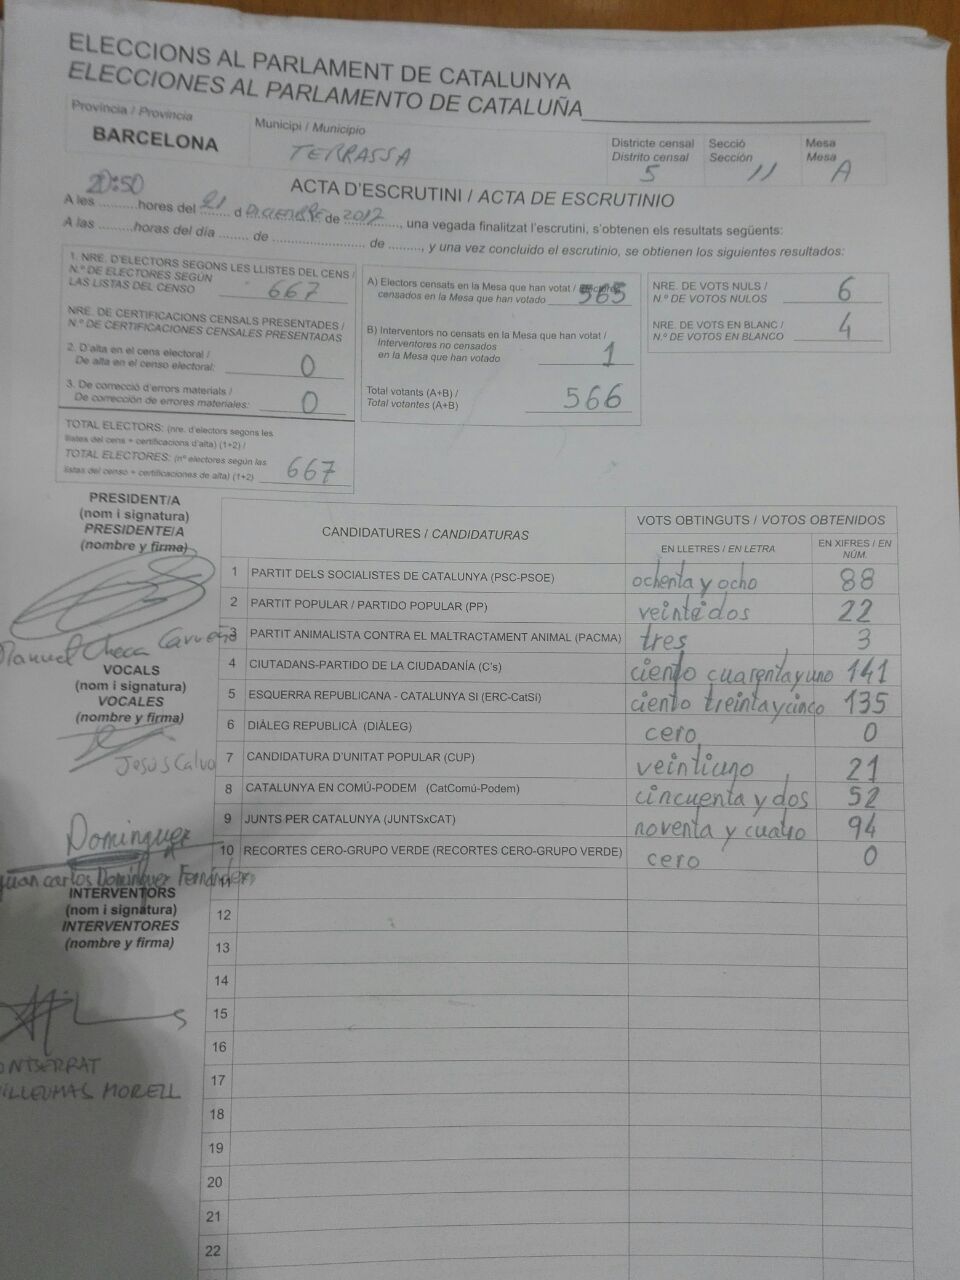 ELECCIONS AL PARLAMENT DE CATALUNYA
ELECCIONES AL PARLAMENTO DE CATALUÑA
Província / Provincia
BARCELONA
Municipi / Municipio
TERRASSA
Districte censal
Distrito censal
5
Secció
Sección
11
Mesa
Mesa
A
ACTA D'ESCRUTINI / ACTA DE ESCRUTINIO
20:50
A les ..........hores del 21 d DICIEMBRE de 2017, una vegada finalitzat l'escrutini, s'obtenen els resultats següents:
A las ..........horas del día ........ de ........................ de ........, y una vez concluido el escrutinio, se obtienen los siguientes resultados:
1. NRE. D'ELECTORS SEGONS LES LLISTES DEL CENS /
N.º DE ELECTORES SEGÚN
LAS LISTAS DEL CENSO 667
NRE. DE CERTIFICACIONS CENSALS PRESENTADES /
N.º DE CERTIFICACIONES CENSALES PRESENTADAS
2. D'alta en el cens electoral /
De alta en el censo electoral: 0
3. De correcció d'errors materials /
De corrección de errores materiales: 0
TOTAL ELECTORS: (nre. d'electors segons les
llistes del cens + certificacions d'alta) (1+2) /
TOTAL ELECTORES: (nº electores según las
listas del censo + certificaciones de alta) (1+2) 667
A) Electors censats en la Mesa que han votat / Electores
censados en la Mesa que han votado 565
B) Interventors no censats en la Mesa que han votat /
Interventores no censados
en la Mesa que han votado 1
Total votants (A+B) /
Total votantes (A+B) 566
NRE. DE VOTS NULS /
N.º DE VOTOS NULOS 6
NRE. DE VOTS EN BLANC /
N.º DE VOTOS EN BLANCO 4
PRESIDENT/A
(nom i signatura)
PRESIDENTE/A
(nombre y firma)
Manuel Checa
VOCALS
(nom i signatura)
VOCALES
(nombre y firma)
Jesús Calvo
Dominguez
Juan Carlos Domínguez Fernández
INTERVENTORS
(nom i signatura)
INTERVENTORES
(nombre y firma)
MORELL
CANDIDATURES / CANDIDATURAS
VOTS OBTINGUTS / VOTOS OBTENIDOS
EN LLETRES / EN LETRA
EN XIFRES / EN
NÚM.
1 PARTIT DELS SOCIALISTES DE CATALUNYA (PSC-PSOE) ochenta y ocho 88
2 PARTIT POPULAR / PARTIDO POPULAR (PP) veintidos 22
3 PARTIT ANIMALISTA CONTRA EL MALTRACTAMENT ANIMAL (PACMA) tres 3
4 CIUTADANS-PARTIDO DE LA CIUDADANÍA (C's) ciento cuarenta y uno 141
5 ESQUERRA REPUBLICANA - CATALUNYA SI (ERC-CatSí) ciento treinta y cinco 135
6 DIÀLEG REPUBLICÀ (DIÀLEG) cero 0
7 CANDIDATURA D'UNITAT POPULAR (CUP) veintiuno 21
8 CATALUNYA EN COMÚ-PODEM (CatComú-Podem) cincuenta y dos 52
9 JUNTS PER CATALUNYA (JUNTSxCAT) noventa y cuatro 94
10 RECORTES CERO-GRUPO VERDE (RECORTES CERO-GRUPO VERDE) cero 0
11
12
13
14
15
16
17
18
19
20
21
22